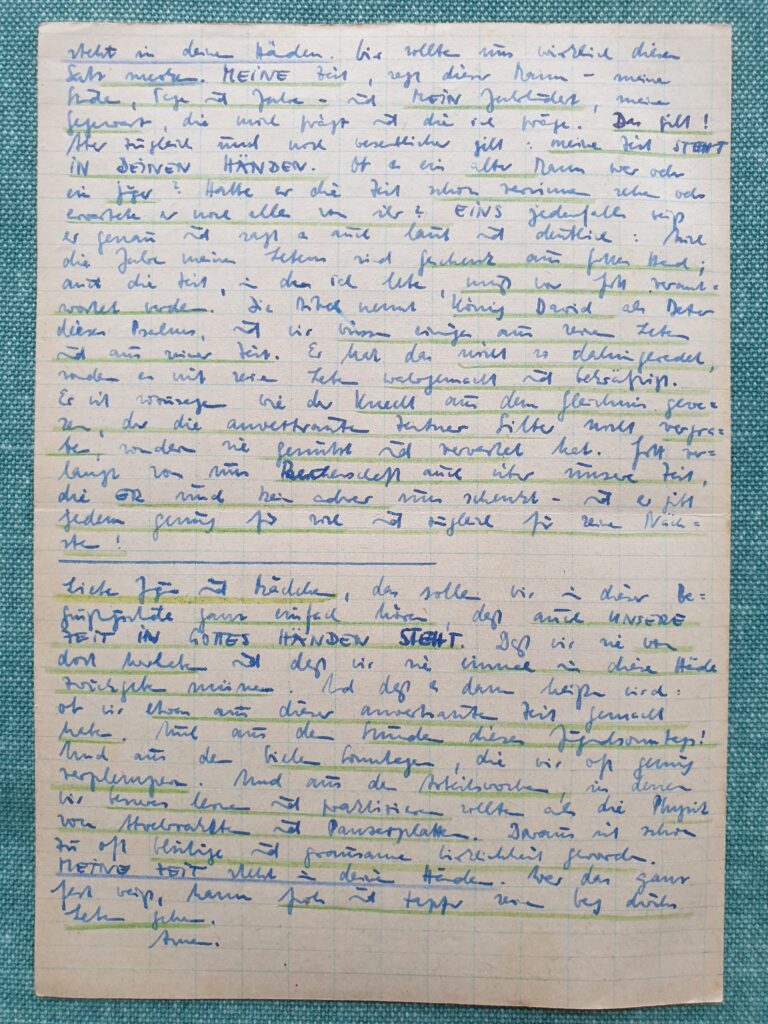 steht in deinen Händen. Wir sollten uns wirklich diesen
Satz merken. MEINE Zeit, sagt dieser Mann – meine
Stunde, Tage und Jahre – und MEIN Jahrhundert, meine
Gegenwart, die mich prägt und die ich präge. Das gilt!
Aber zugleich und noch wesentlicher gilt: meine Zeit STEHT
IN DEINEN HÄNDEN. Ob es ein alter Mann war oder
ein Jüger? Hatte er die Zeit schon verrinnen sehen oder
erwartete er noch alles von ihr? EINS jedenfalls weiß
er genau und sagt es auch laut und deutlich: Nicht
die Jahre meines Lebens sind Geschenk aus Gottes Hand;
auch die Zeit, in der ich lebe, muß vor Gott verant-
wortet werden. Die Bibel nennt König David als Beter
dieses Psalms, und wir wissen einiges aus seinem Leben
und aus seiner Zeit. Er hat das nicht so dahingeredet,
sondern es mit seinem Leben wahrgemacht und bekräftigt.
Er ist sozusagen wie der Knecht aus dem Gleichnis gewe-
sen, der die anvertrauten Zentner Silber nicht vergra-
ben, sondern sie genutzt und verwertet hat. Gott ver-
langt von uns Rechenschaft auch über unsere Zeit,
die ER und kein anderer uns schenkt – und er gibt
jedem genug für sich und zugleich für seinen Näch-
sten!
Liebe Jungen und Mädchen, das sollen wir in dieser Be-
ganz einfach hören, daß auch UNSERE
ZEIT IN GOTTES HÄNDEN STEHT. Daß wir sie von
dort haben und daß wir sie einmal in diese Hände
zurückgeben müssen. Und daß es dann heißen wird:
ob wir etwas aus dieser anvertrauten Zeit gemacht
haben. Und aus den Stunden dieses Jugendsonntags!
Und aus den vielen Sonntagen, die wir oft genug
verplempern. Und aus den Arbeitswochen, in denen
wir besseres lernen und praktizieren sollten als die Physik
von und Panzerplatten. Daraus ist schon
zu oft blutige und grausame Wirklichkeit geworden.
MEINE ZEIT steht in deinen Händen. Wer das ganz
fest weiß, kann froh und tapfer seinen Weg durchs
Leben gehen.
Amen.